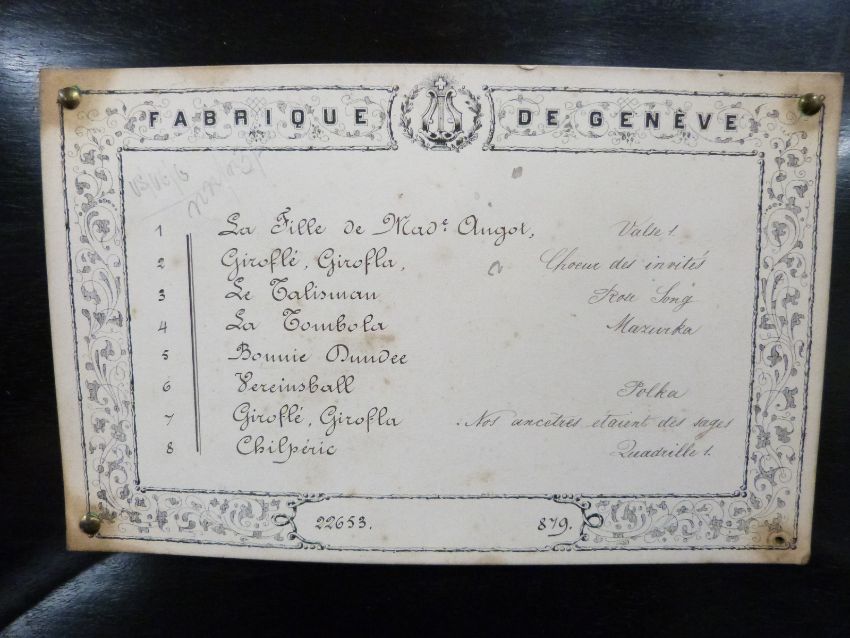 FABRIQUE DE GENÈVE
1 La Fille de Mad.e Angot, Valse 1
2 Giroflé, Girofla, Choeur des invités
3 Le Talisman Rose Song
4 La Tombola Mazurka
5 Bonnie Dundee
6 Vereinsball Polka
7 Giroflé, Girofla . Nos ancêtres etaient des sages
8 Chilpéric Quadrille 1.
22653. 879.